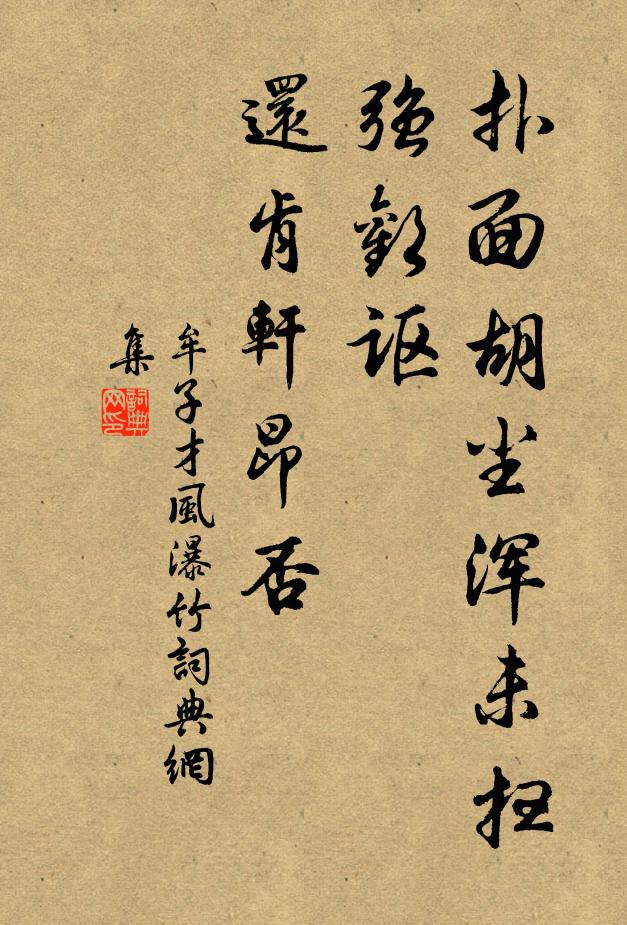 扑面胡尘浑未扫
强歡讴
還肯軒昂否
牟子才風瀑竹詞典網
集
詞典
网印